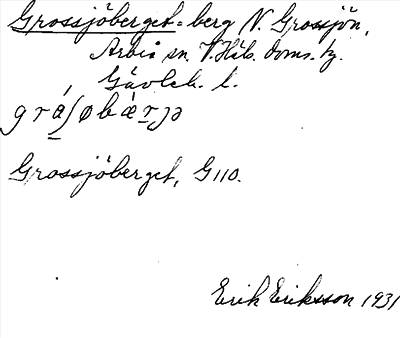 Grossjöberget = berg N. Grossjön,
Arbrå sn. V. Häls. doms. hg.
Gävleb. l.
grá̱ʃøbæ̀ṟjə
Grossjöberget, G110.
Erik Eriksson 1931